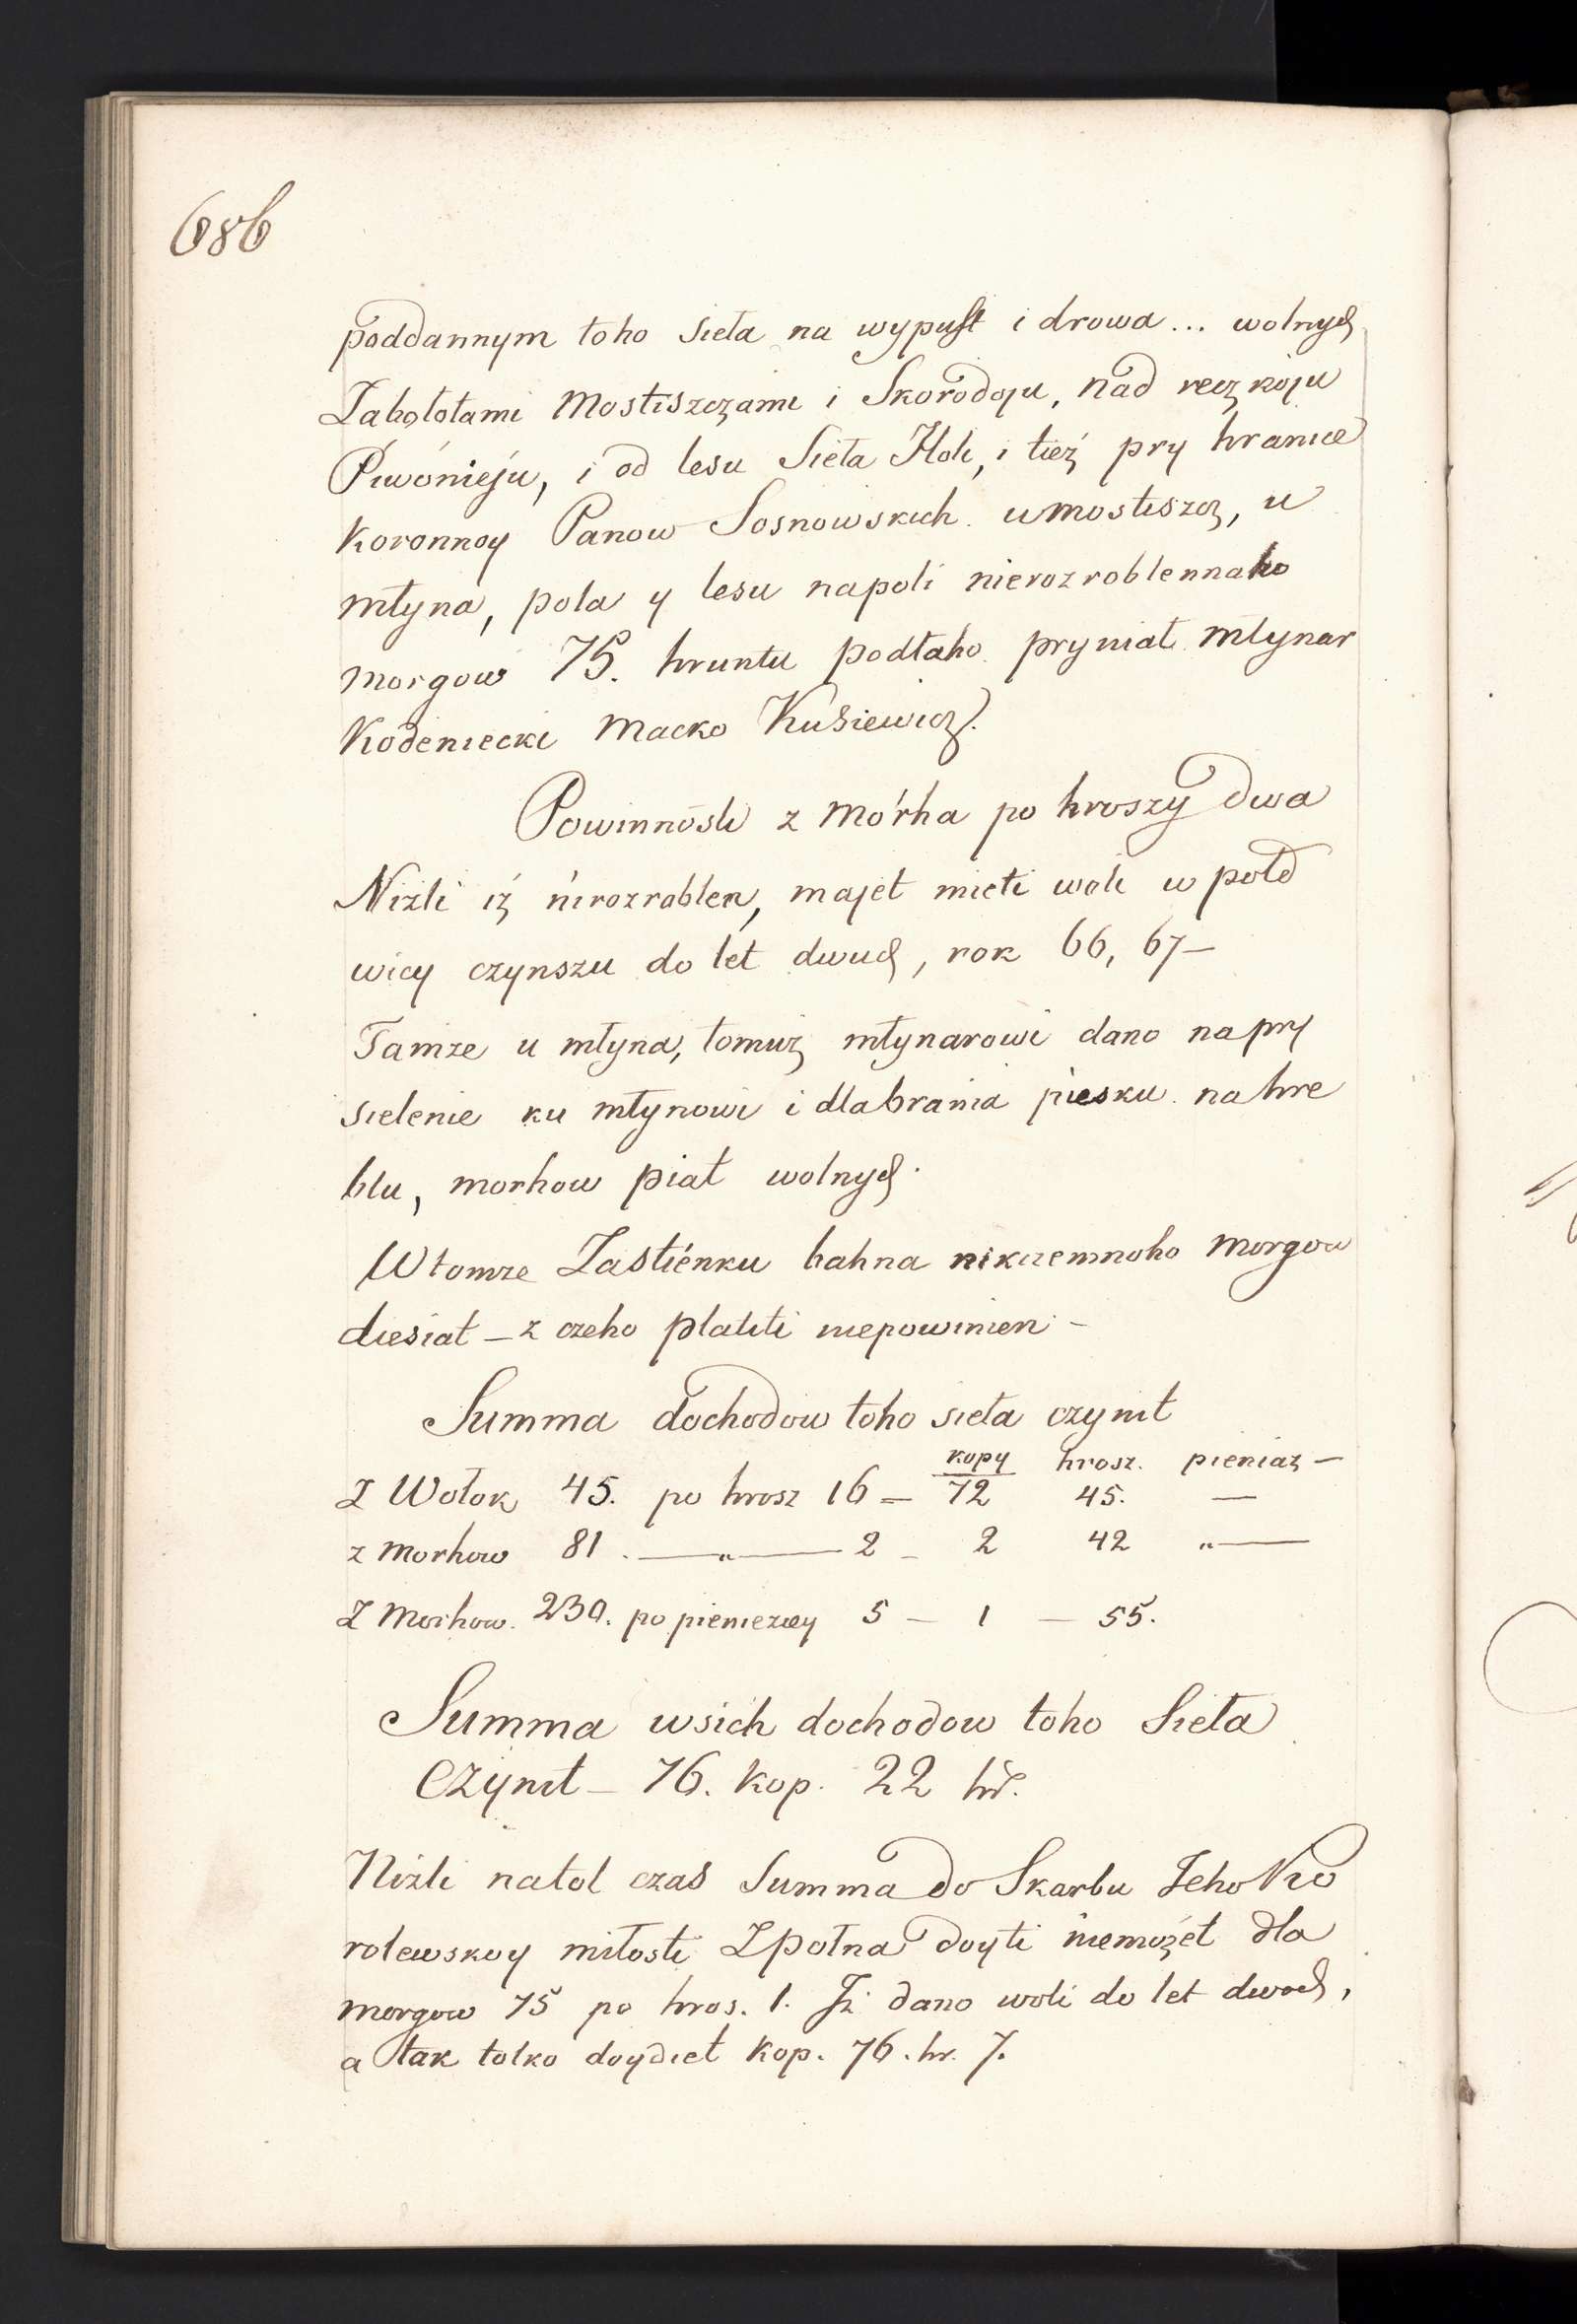 686
poddannym toho sieła na wypust i drowa... wolnych
Zabołotami Mostiszczami i Skorodoju, nad reczkoju
Piwónieju, i od lesu Sieła Holi, i tież pry hranice
Koronnoy Panow Sosnowskich u mostiszcz, u
młyna, pola y lesu napoli nierozroblennaho
morgow 75. hruntu podłaho pryniał młynar
Kodeniecki Macko Kusiewicz.
Powinnósti z Mórha po hroszy dwa
Niżli iż nirozroblen, majet mieti woli w poło
wicy czynszu do let dwuch, rok 66, 67 –
Tamże u młyna, tomuż młynarowi dano na pry
sielenie ku młynowi i dla brania piesku na hre
blu, morhow piat wolnych.
W tomże Zastiénku bahna nikczemnoho morgow
diesiat – z czeho płatiti niepowinien –
Summa dochodow toho sieła czynit
kopy hrosz. pieniaz –
Z Wołok 45. po hrosz 16 = 72 45. —
z Morhow 81. —„— 2 – 2 42 „—
Z Morhow. 230. po pieniezwy 5 – 1 – 55.
Summa wsich dochodow toho Sieła
czynit – 76. kop. 22 hr.
Niżli natot czas Summa do Skarbu Jeho Ko
rolewskoy miłosti Zpołna doyti niemożet dla
morgow 75 po hros. 1. Iż dano woli do let dwoch,
a tak tolko doydiet kop. 76. hr. 7.